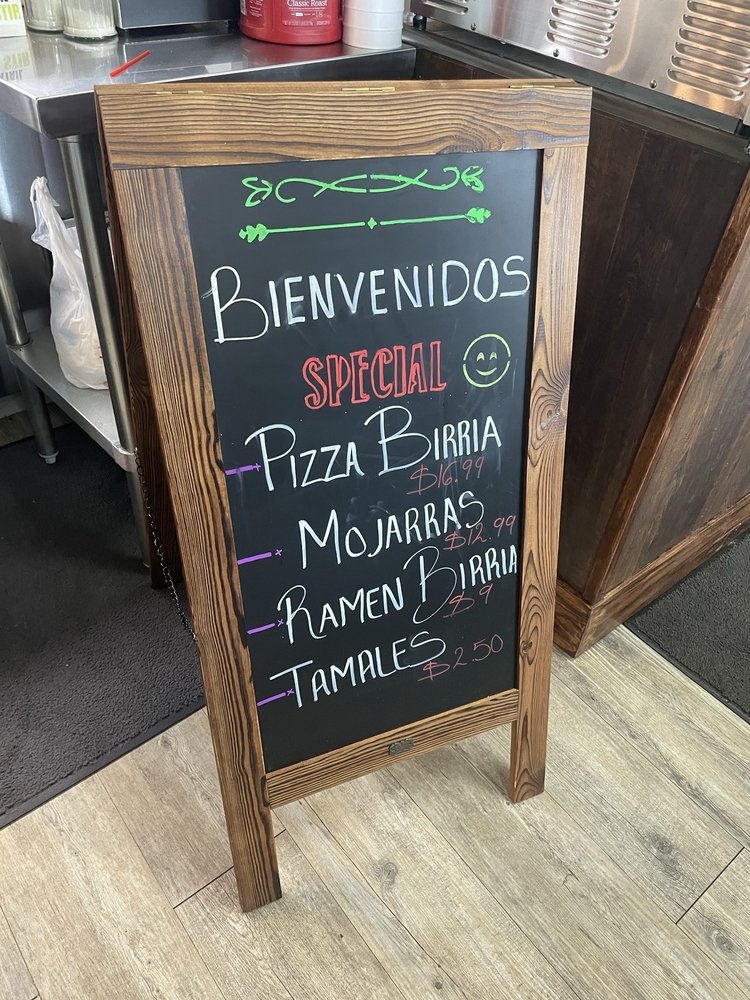 Classic Roast
BIENVENIDOS
SPECIAL
PIZZA BIRRIA
$16.99
MOJARRAS
$12.99
RAMEN BIRRIA
$9
TAMALES
$2.50